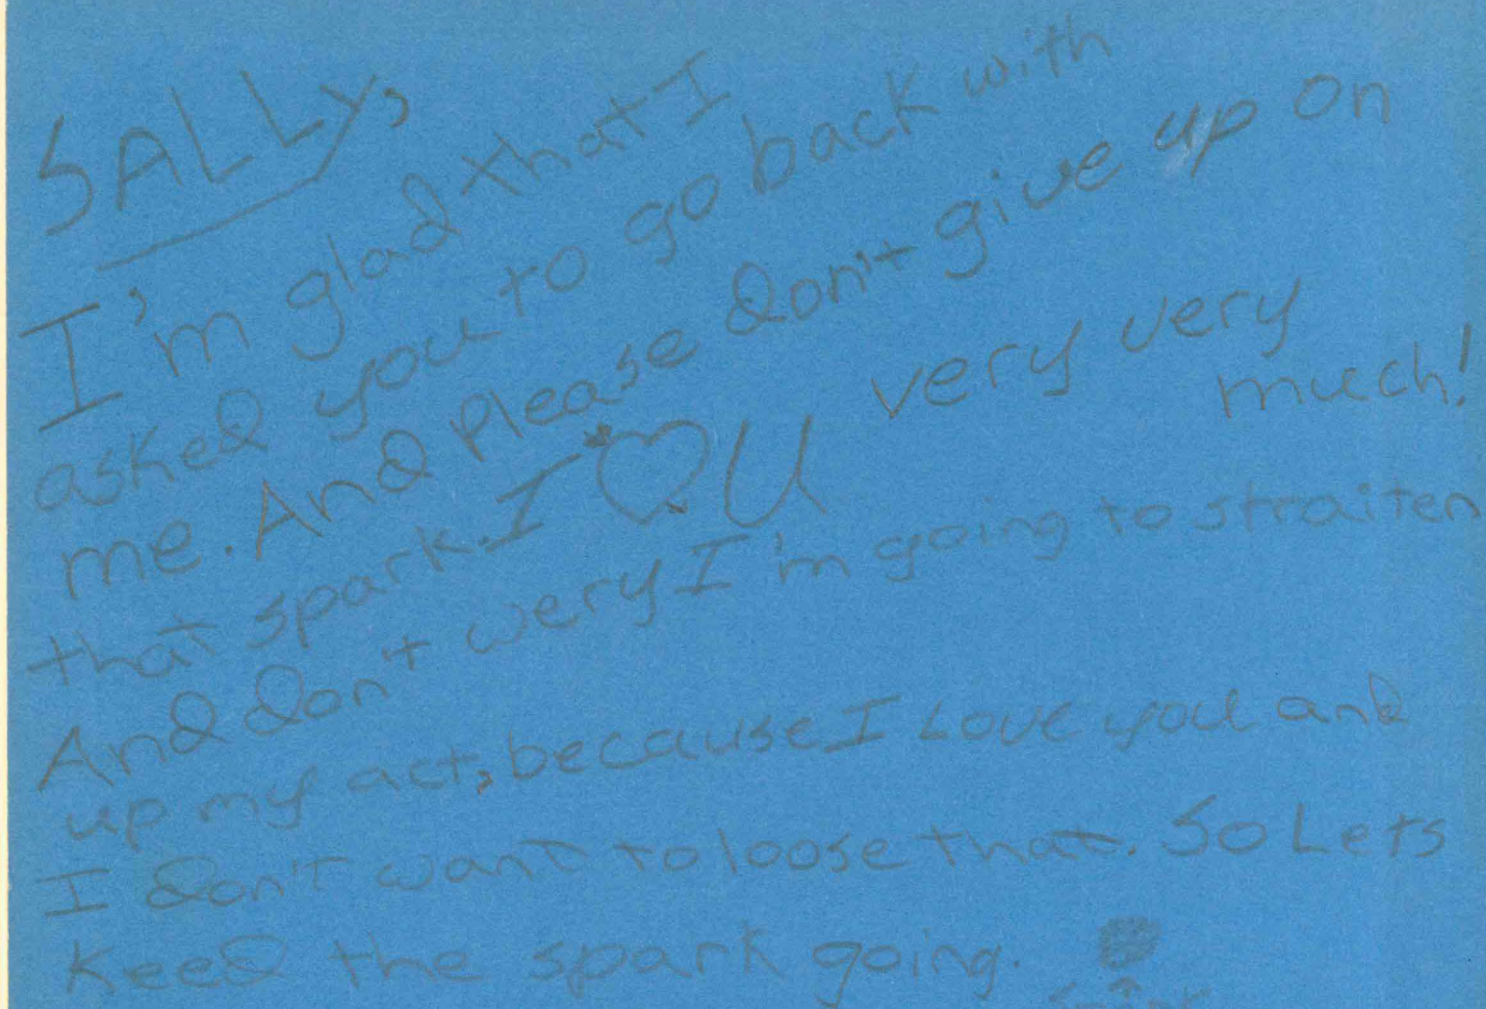 SALLy,
I'm glad that I
asked you to go back with
me. And Please don't give up on
that spark. I ♡ U very very
much!
And don't wery I'm going to straiten
up my act, because I Love you and
I don't want to loose that. So Lets
Keed the spark going.